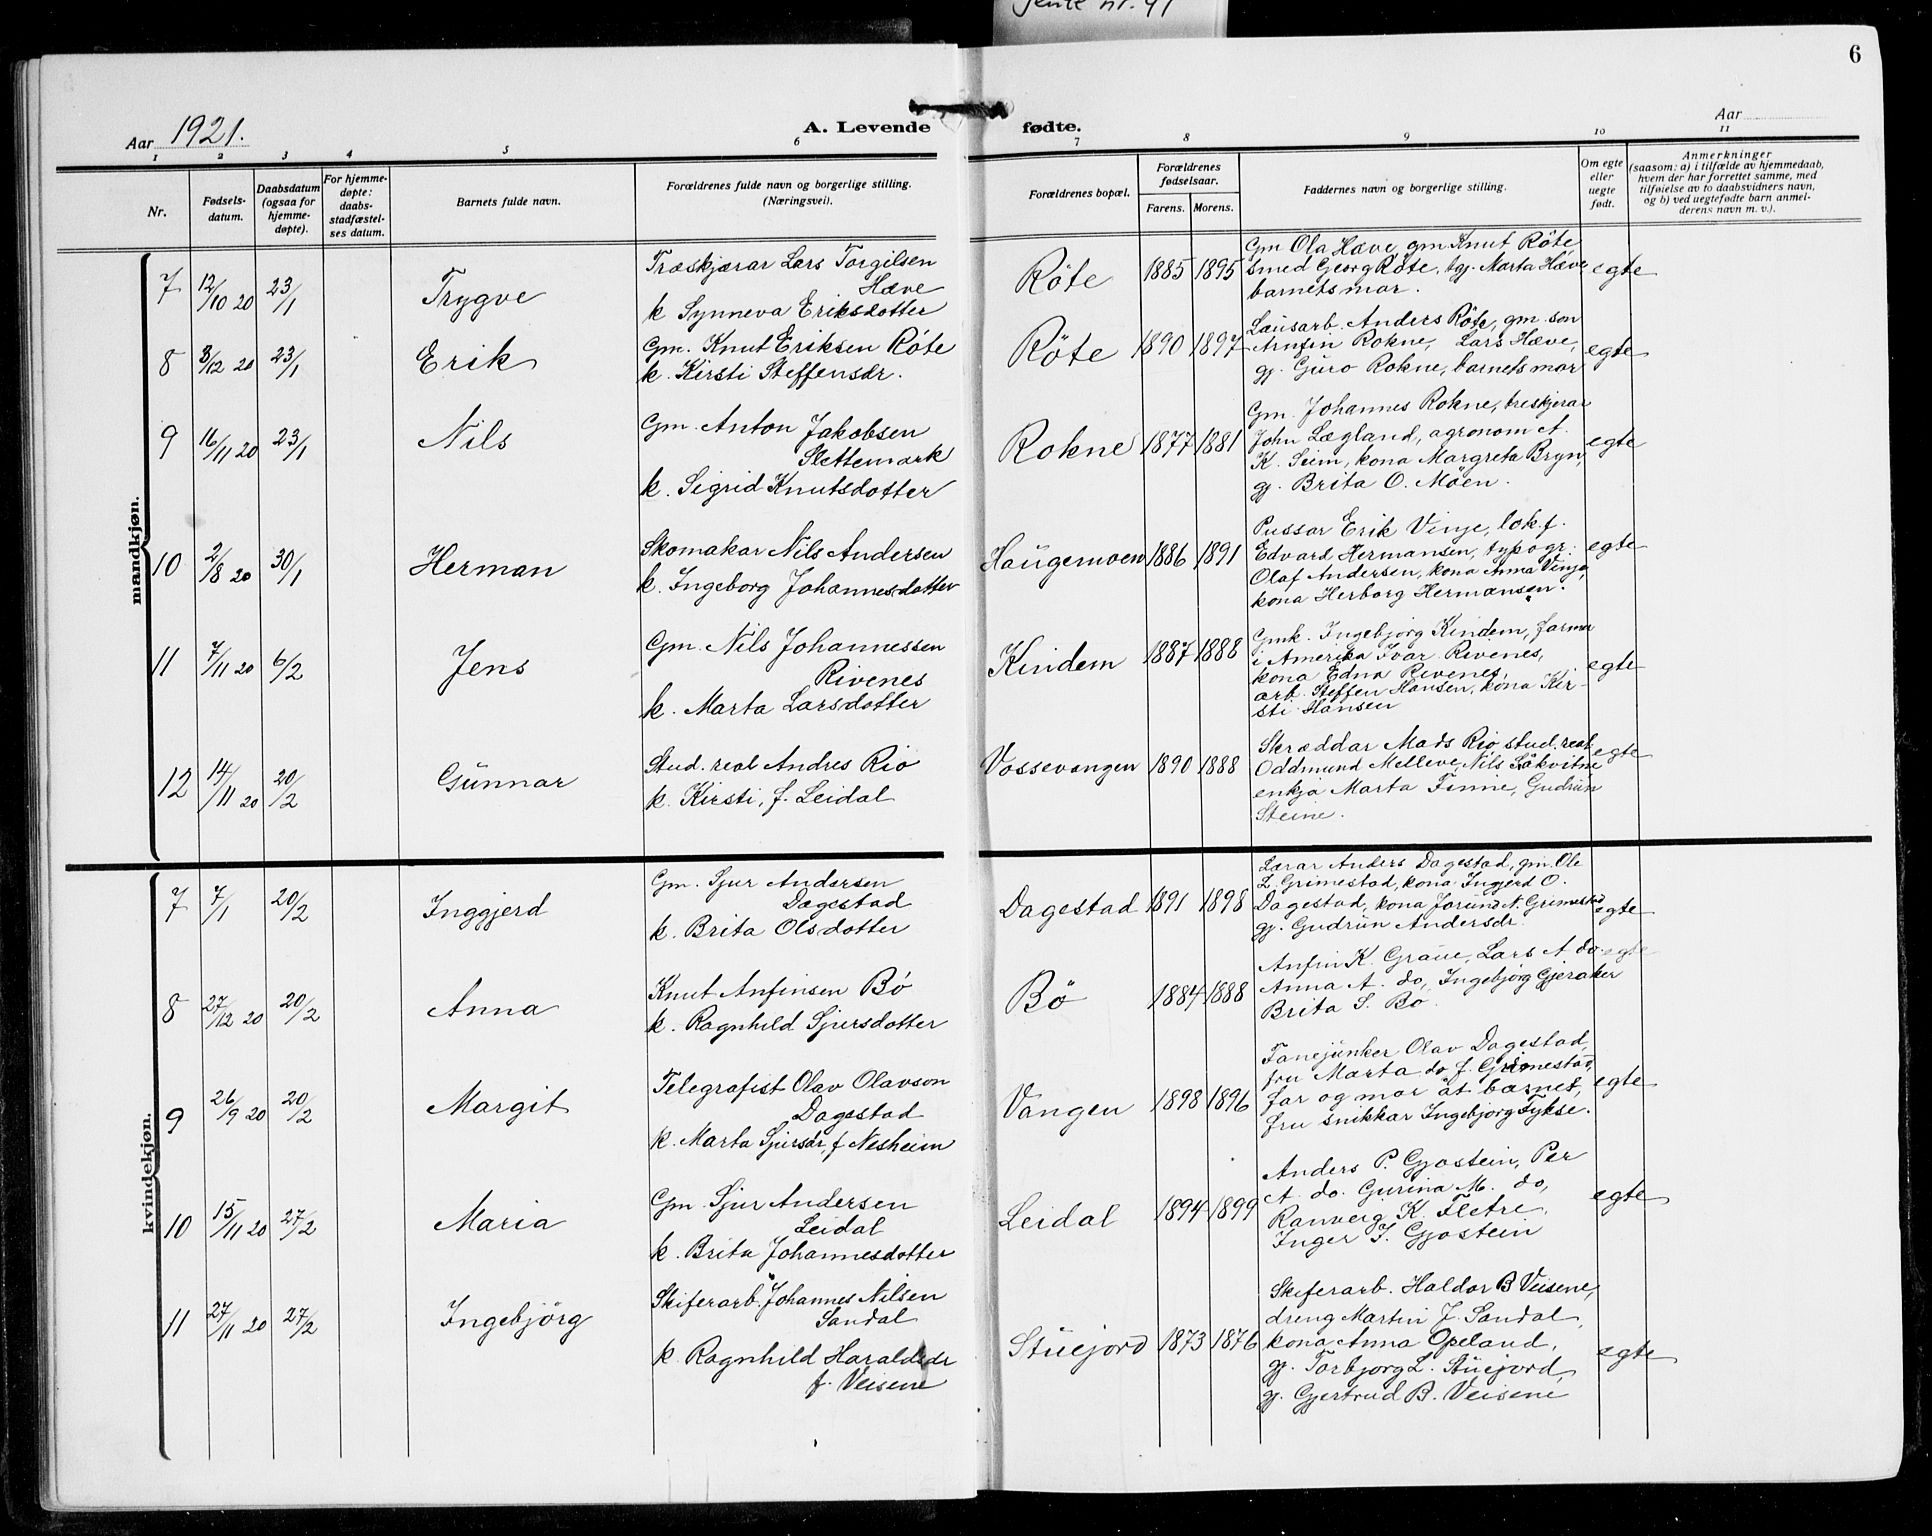 Jente nr. 41
6
Aar 1921.
A. Levende fødte.
Aar
1 2 3 4 5 6 7 8 9 10 11
Nr.
Fødsels-
datum.
Daabsdatum
(ogsaa for
hjemme-
døpte).
For hjemme-
døpte:
daabs-
stadfæstel-
ses datum.
Barnets fulde navn.
Forældrenes fulde navn og borgerlige stilling.
(Næringsvei).
Forældrenes bopæl.
Forældrenes
fødselsaar.
Farens. Morens.
Faddernes navn og borgerlige stilling.
Om egte
eller
uegte
født.
Anmerkninger
(saasom: a) i tilfælde av hjemmedaab,
hvem der har forrettet samme, med
tilføielse av to daabsvidners navn,
og b) ved uegtefødte barn anmel-
derens navn m. v.).
mandkjøn.
7 12/10 20 23/1 Trygve
Træskjærar Lars Torgilsen
Hæve
k Synneva Eriksdotter
Röte 1885 1895
Gm Ola Hæve, gm Knut Röte
smed Georg Röte, tgj. Marta Hæve
barnets mor.
egte
8 3/12 20 23/1 Erik
Gm. Knut Eriksen Röte
k. Kirsti Steffensdr.
Röte 1890 1897
Lausarb. Anders Röte, gm. son
Arnfin Rokne, Lars Hæve,
gj. Guro Rokne, barnets mor
egte
9 16/11 20 23/1 Nils
Gm. Anton Jakobsen
Slettemark
k. Sigrid Knutsdotter
Rokne 1877 1881
Gm. Johannes Rokne, treskjerar
John Lægland, agronom A.
K. Seim, kona Margreta Bryn,
gj. Brita O. Möen.
egte
10 2/8 20 30/1 Herman
Skomakar Nils Andersen
k. Ingeborg Johannesdotter
Haugemoen 1886 1891
Pussar Erik Vinje, lok.f.
Edvard Hermansen, typogr.
Olaf Andersen, kona Anna Vinje,
kona Herborg Hermansen.
egte
11 7/11 20 6/2 Jens
Gm. Nils Johannessen
Rivenes
k. Marta Larsdotter
Kindem 1887 1888
Gmk. Ingebjörg Kindem, farmer
i Amerika Ivar Rivenes,
kona Edna Rivenes,
arb. Steffen Hansen, kona Kir-
sti Hansen
egte
12 14/11 20 20/2 Gunnar
Stud. real Andres Rio
k. Kirsti, f. Leidal
Vossevangen 1890 1888
Skræddar Mads Rio, stud. real
Oddmund Melleve, Nils Såkvitne
enkja Marta Finne, Gudrun
Steine.
egte
kvindekjøn.
7 7/1 20/2 Inggjerd
Gm. Sjur Andersen
Dagestad
k. Brita Olsdotter
Dagestad 1891 1898
Lærar Anders Dagestad, gm. Ole
L. Grimestad, kona Inggjerd O.
Dagestad, kona Jorund N. Grimestad
gj. Gudrun Andersdr.
egte
8 27/12 20 20/2 Anna
Knut Anfinsen Bö
k. Ragnhild Sjursdotter
Bö 1884 1888
Anfin K. Graue, Lars A. do
Anna A. do, Ingebjörg Gjeraker
Brita S. Bö.
egte
9 26/9 20 20/2 Margit
Telegrafist Olav Olavson
Dagestad
k. Marta Sjursdr, f. Nesheim
Vangen 1898 1896
Fanejunker Olav Dagestad,
fru Marta do f. Grimestad,
far og mor åt barnet,
fru snikkar Ingebjorg Tykse.
egte
10 15/11 20 27/2 Maria
Gm. Sjur Andersen
Leidal
k. Brita Johannesdotter
Leidal 1894 1899
Anders P. Gjostein, Per
A. do. Gurina M. do,
Ranveig K. Fletre,
Inger J. Gjostein
egte
11 27/11 20 27/2 Ingebjörg
Skiferarb. Johannes Nilsen
Sandal
k. Ragnhild Haraldsdr
f. Veisene
Stuejord 1873 1876
Skiferarb. Haldor B Veisene,
dreng Martin J. Sandal,
kona Anna Opeland,
gj. Torbjorg L. Stuejord,
gj. Gjertrud B. Veisene
egte